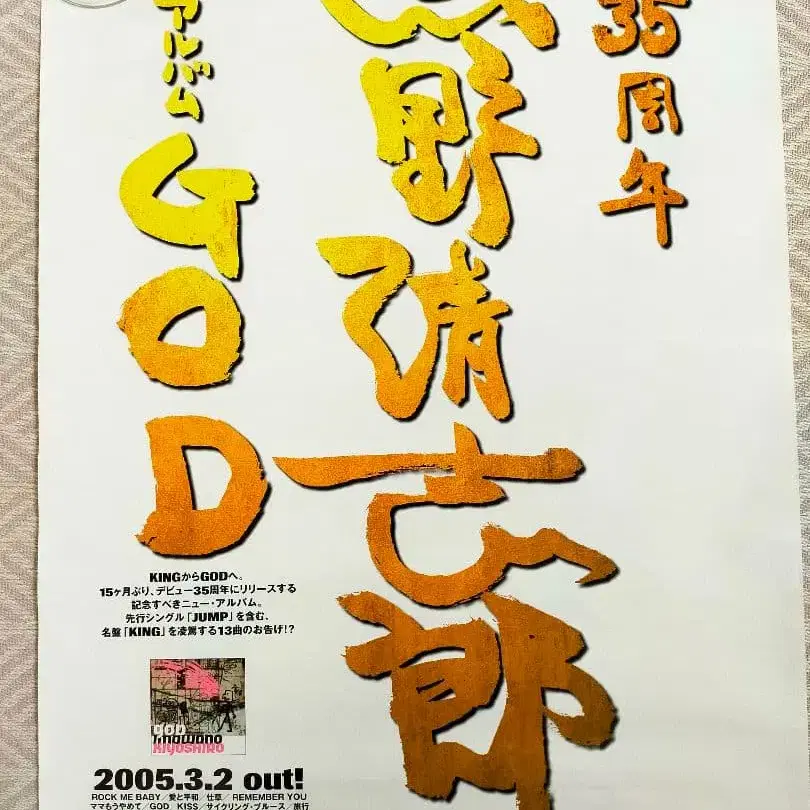 35周年
忌野清志郎
アルバム
GOD
KINGからGODへ。
15ヶ月ぶり、デビュー35周年にリリースする
記念すべきニュー・アルバム。
先行シングル「JUMP」を含む、
名盤「KING」を凌駕する13曲のお告げ!?
GOD
IMAWANO
KIYOSHIRO
2005.3.2 out!
ROCK ME BABY／愛と平和／仕草／REMEMBER YOU
ママもうやめて／GOD／KISS／サイクリング・ブルース／旅行